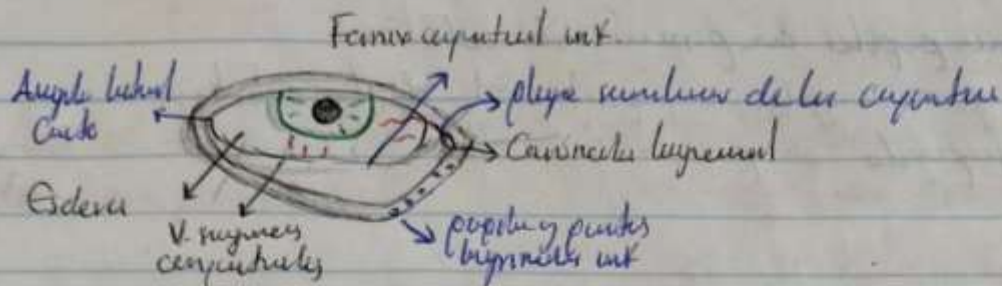 Fornix conjuntival inf.
Angulo lateral
plega semilunar de la conjuntiva
Carúncula lagrimal
Esclera
V. sanguíneos
conjuntivales
papila y puntos
lagrimales inf